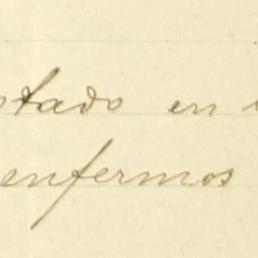 stado en
enfermos